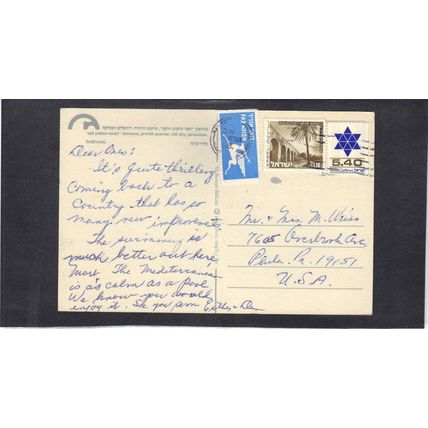 "old yishuv court" museum, jewish quarter, old city, jerusalem.
bedroom
חדר שינה
Dear Ones:
It's quite thrilling
Coming back to a
Country that has so
many new improvements.
The swimming is
much better out here
Most. The Mediterranean
is as calm as a pool
We know you would
enjoy it. See you soon Esther + Dan
PAR AVION
ישראל
5.40
Mr. & Mrs. M. Weiss
7605 Ave
Phila. Pa. 19151
U.S.A.